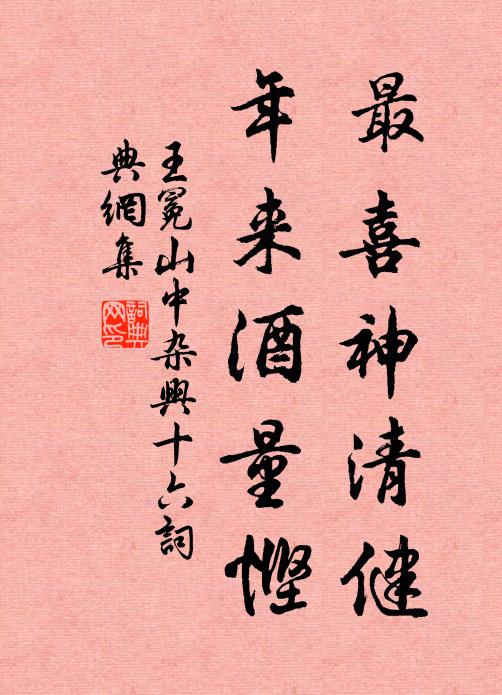 最喜神清健
年来酒量悭
王冕山中杂興十六詞
典網集
詞典网印